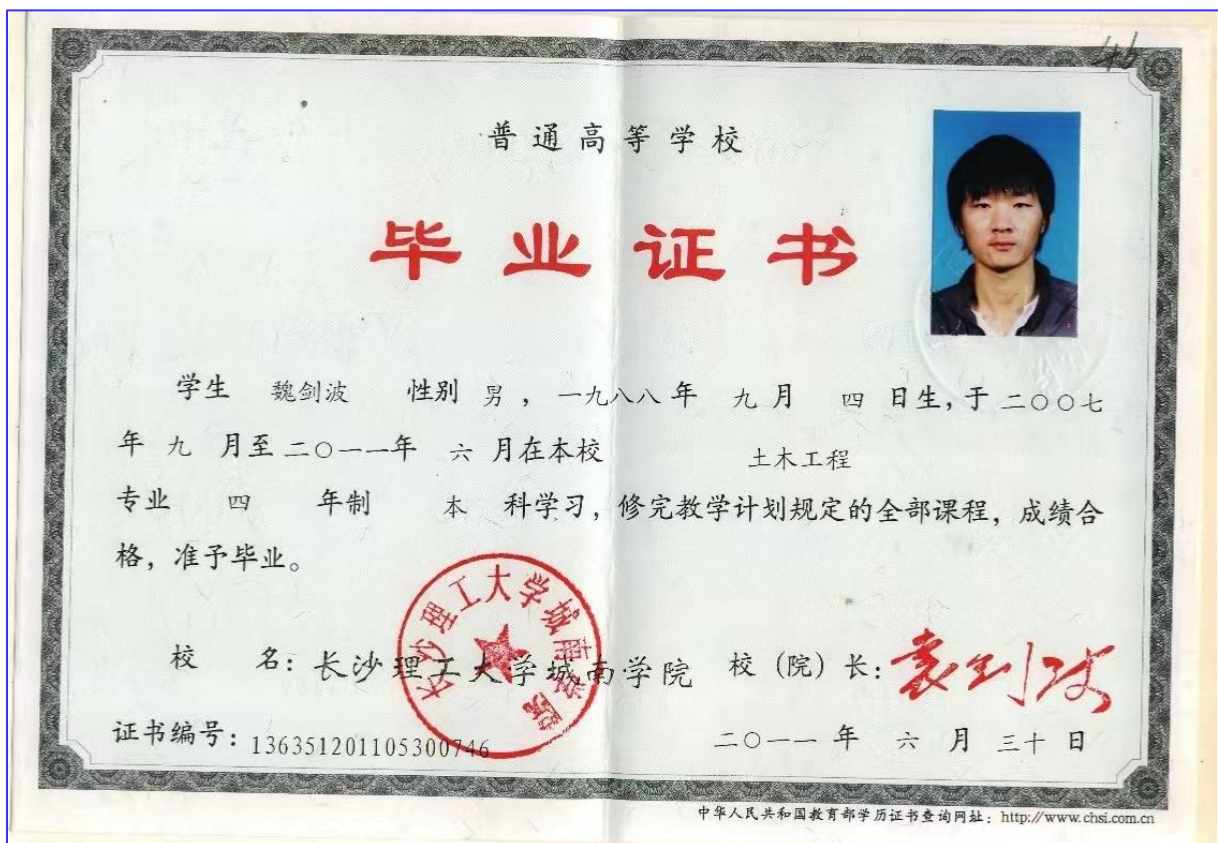 46
普通高等学校
毕业证书
学生 魏剑波 性别 男，一九八八年 九月 四 日生，于二〇〇七
年 九 月至二〇一一年 六 月在本校 土木工程
专业 四 年制 本 科学习，修完教学计划规定的全部课程，成绩合
格，准予毕业。
长沙理工大学城南学院
校 名：长沙理工大学城南学院 校（院）长：袁剑波
证书编号：136351201105300746 二〇一一 年 六 月 三十 日
中华人民共和国教育部学历证书查询网址：http://www.chsi.com.cn